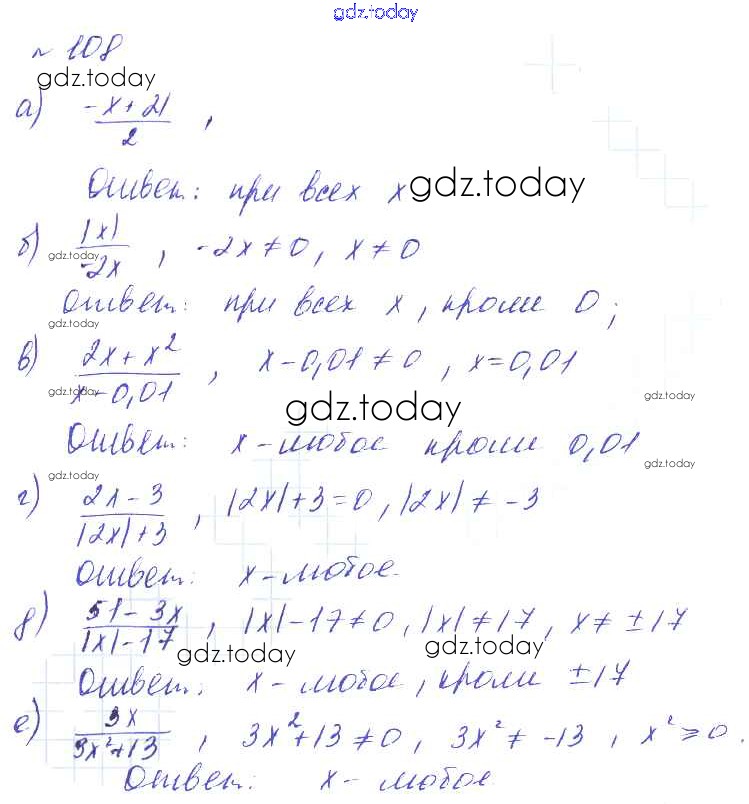 gdz.today
№ 108
gdz.today
а) -x+21/2 ,
Ответ: при всех x gdz.today
б) |x|/-2x , -2x≠0, x≠0
gdz.today
Ответ: при всех x, кроме 0;
gdz.today
в) 2x+x²/x-0,01 , x-0,01≠0, x=0,01
gdz.today gdz.today
gdz.today
Ответ: x-любое кроме 0,01
gdz.today gdz.today
г) 2x-3/|2x|+3 , |2x|+3=0, |2x|≠-3
Ответ: x-любое.
д) 51-3x/|x|-17 , |x|-17≠0, |x|≠17, x≠±17
gdz.today gdz.today
Ответ: x-любое, кроме ±17
е) 3x/3x²+13 , 3x²+13≠0, 3x²≠-13, x²≥0.
Ответ: x-любое